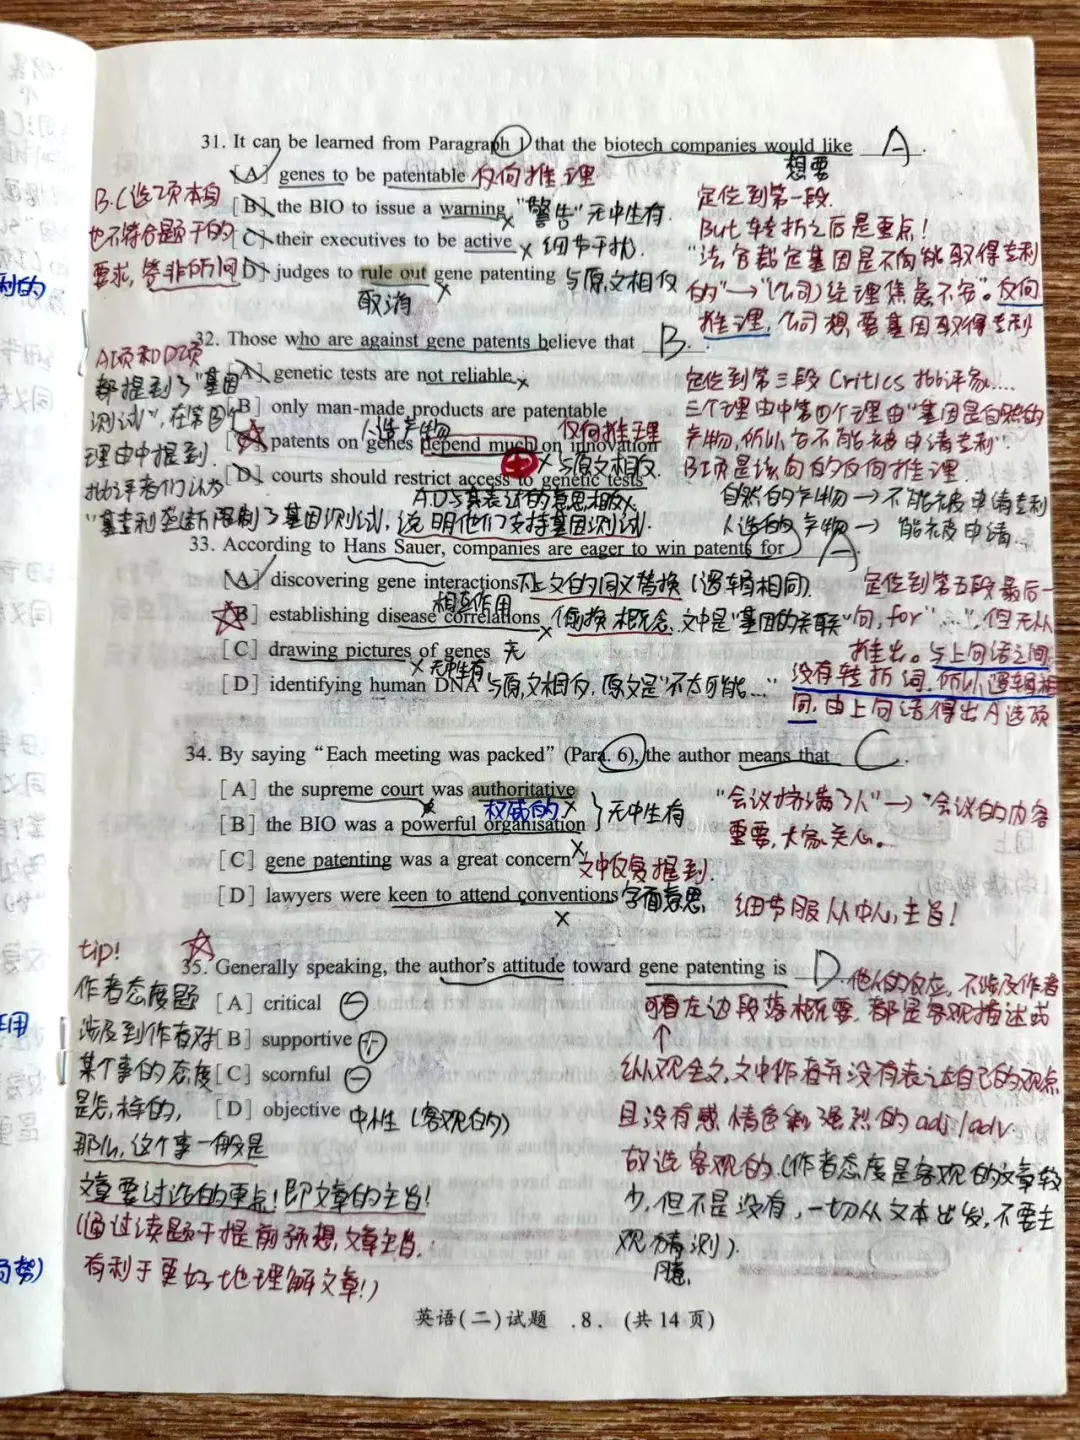 31. It can be learned from Paragraph 1 that the biotech companies would like A.
想要
[A] genes to be patentable 反向推理
[B] the BIO to issue a warning "警告"无中生有.
[C] their executives to be active 细节干扰.
[D] judges to rule out gene patenting 与原文相反
取消
B.C选项本身
也不符合题干的
要求, 答非所问
定位到第一段.
But 转折之后是重点!
"法官裁定基因是不可能取得专利
的"→"(公司)经理焦虑不安". 反向
推理, 公司想要基因取得专利
32. Those who are against gene patents believe that B.
[A] genetic tests are not reliable
[B] only man-made products are patentable
人造产物 反向推理
[C] patents on genes depend much on innovation
与原文相反.
[D] courts should restrict access to genetic tests
A.D与其表达的意思相反
A项和D项
都提到了"基因
测试", 在第四个
理由中提到.
批评者们认为
"基专利垄断限制了基因测试, 说明他们支持基因测试.
定位到第三段 Critics 批评家....
三个理由中第四个理由"基因是自然的
产物, 所以它不能被申请专利".
B项是该句的反向推理.
自然的产物 → 不能被申请专利
人造的产物 → 能被申请.
33. According to Hans Sauer, companies are eager to win patents for A.
[A] discovering gene interactions 上文的同义替换 (逻辑相同).
相互作用
[B] establishing disease correlations 偷换概念. 文中是"基因的关联"
[C] drawing pictures of genes 无
无中生有
[D] identifying human DNA 与原文相反, 原文是"不太可能..."
定位到第五段最后一
句, for "....", 但无从
推出. 与上句话之间
没有转折词, 所以逻辑相
同, 由上句话得出A选项
34. By saying "Each meeting was packed" (Para. 6), the author means that C.
[A] the supreme court was authoritative
权威的
[B] the BIO was a powerful organisation
无中生有
[C] gene patenting was a great concern 文中反复提到.
[D] lawyers were keen to attend conventions 字面意思.
"会议挤满了人"→"会议的内容
重要, 大家关心。
细节服从中心, 主旨!
35. Generally speaking, the author's attitude toward gene patenting is D.
[A] critical −
[B] supportive +
[C] scornful −
[D] objective 中性 (客观的)
tip!
作者态度题
涉及到作者对
某个事的态度
是怎样的,
那么, 这个事一般是
文章要讨论的重点! 即文章的主旨!
(通过读题干提前预想, 文章主旨.
有利于更好地理解文章!)
他人的反应, 不涉及作者
可看左边段落概要. 都是客观描述或
纵观全文, 文中作者并没有表达自己的观点
且没有感情色彩强烈的 adj/adv.
故选客观的. (作者态度是客观的文章较
少, 但不是没有, 一切从文本出发, 不要主
观猜测).
臆
英语(二)试题 .8. (共14页)